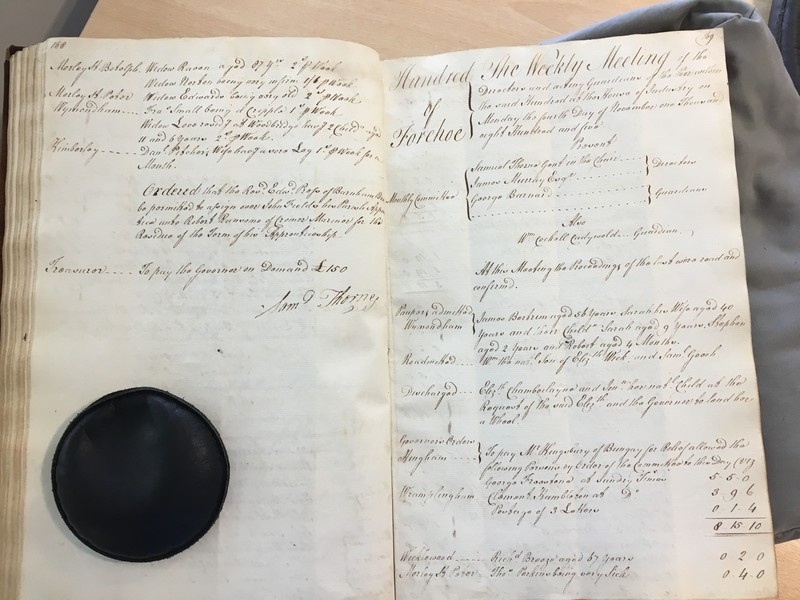 168
Morley St Botolph. Widow Rason aged 87 yrs 2s ⅌ Week
Widow Norton being very infirm 1/6 ⅌ Week
Morley St Peter Widow Edwards being very old 2s ⅌ Week
Wymondham Fras Small being a Cripple 1s ⅌ Week
Widow Love resid.g at Woodbridge hav.g 2 Childn aged
11 and 6 years 2s ⅌ Week.
Kimberley Danl Pitcher's Wife hav.g a sore Leg 1s ⅌ Week for a
Month.
Ordered that the Revd Edwd Ross of Barnham
be permitted to assign over John Field his Parish Appren
tice unto Robert Ransome of Cromer Mariner for the
Residue of the Term of his Apprenticeship.
Treasurer To pay the Governor on Demand £150
Saml Thorne
Hundred
of
Forehoe
The Weekly Meeting of the
Directors and acting Guardians of the Poor within
the said Hundred at the House of Industry on
Monday the fourth Day of November one Thousand
eight Hundred and five
Present
Samuel Thorne Gent in the Chair
James Murray Esqr
Directors
Monthly Committee
George Barnard
Guardian
Also
Wm Guardian.
At this Meeting the Proceedings of the last were read and
confirmed.
Paupers admitted
Wymondham
James Bertrem aged 56 Years Sarah his Wife aged 40
Years and their Childn Sarah aged 9 Years, Stephen
aged 2 Years and Robert aged 4 Months.
Readmitted Wm the natl Son of Elizth Week and Saml Gooch
Discharged Elizth Chamberlayne and her natl Child at the
Request of the said Elizth and the Governor to lend her
a Wheel.
Governors Orders
Hingham To pay Mr Kingsbury of Bungay for Relief allowed the
following Persons by Order of the Committee to this Day (viz
George Freestone at Sundry Times 5-5-0
Wramplingham Clement Kimbleton at Do 3 9 6
Postage of 3 Letters 0 1 4
8 15 10
Wicklewood Richd Breeze aged 67 Years 0 2 0
Morley St Peter Thos Perkins being very Sick 0 4 0